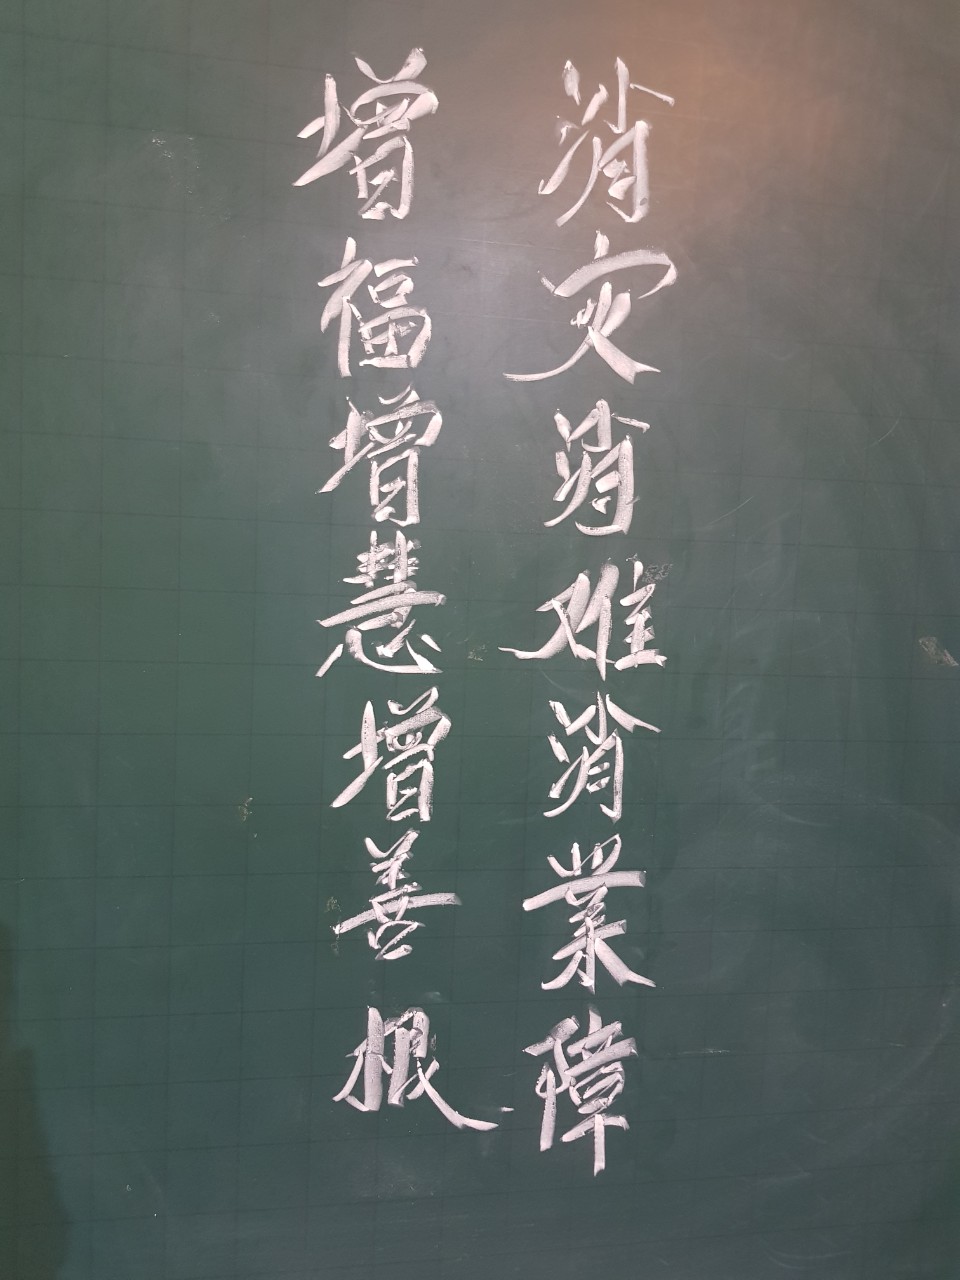 消灾消难消業障
增福增慧增善根